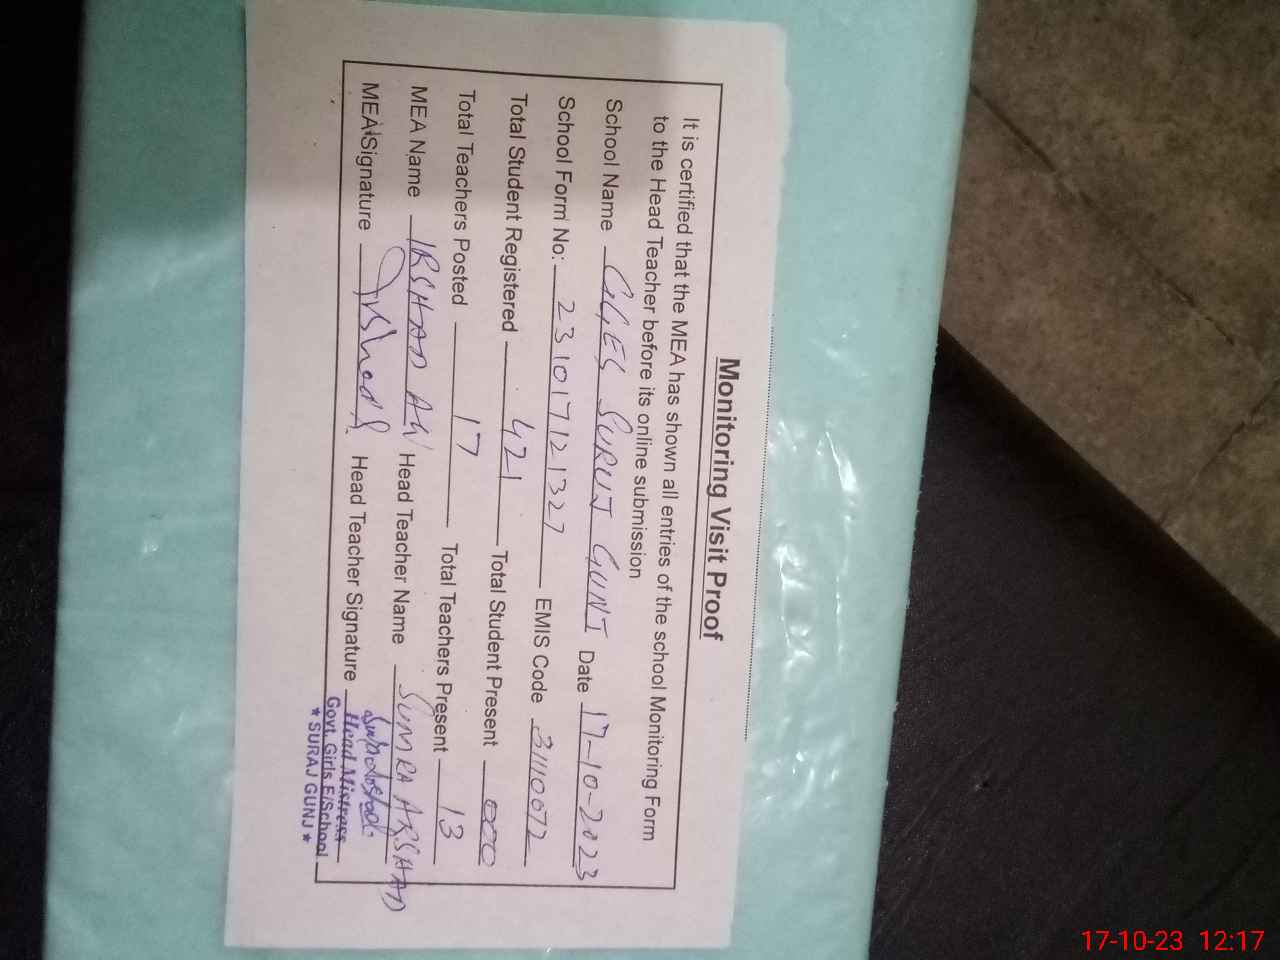 Monitoring Visit Proof
It is certified that the MEA has shown all entries of the school Monitoring Form
to the Head Teacher before its online submission
School Name GGES SURUJ GUNJ Date 17-10-2023
School Form No: 231017121327 EMIS Code 31110072
Total Student Registered 421 Total Student Present 000
Total Teachers Posted 17 Total Teachers Present 13
MEA Name IRSHAD Ali Head Teacher Name SUMRA ARSHAD
MEA Signature Irshad Head Teacher Signature
Head Mistress
Govt. Girls E/School
* SURAJ GUNJ *
17-10-23 12:17